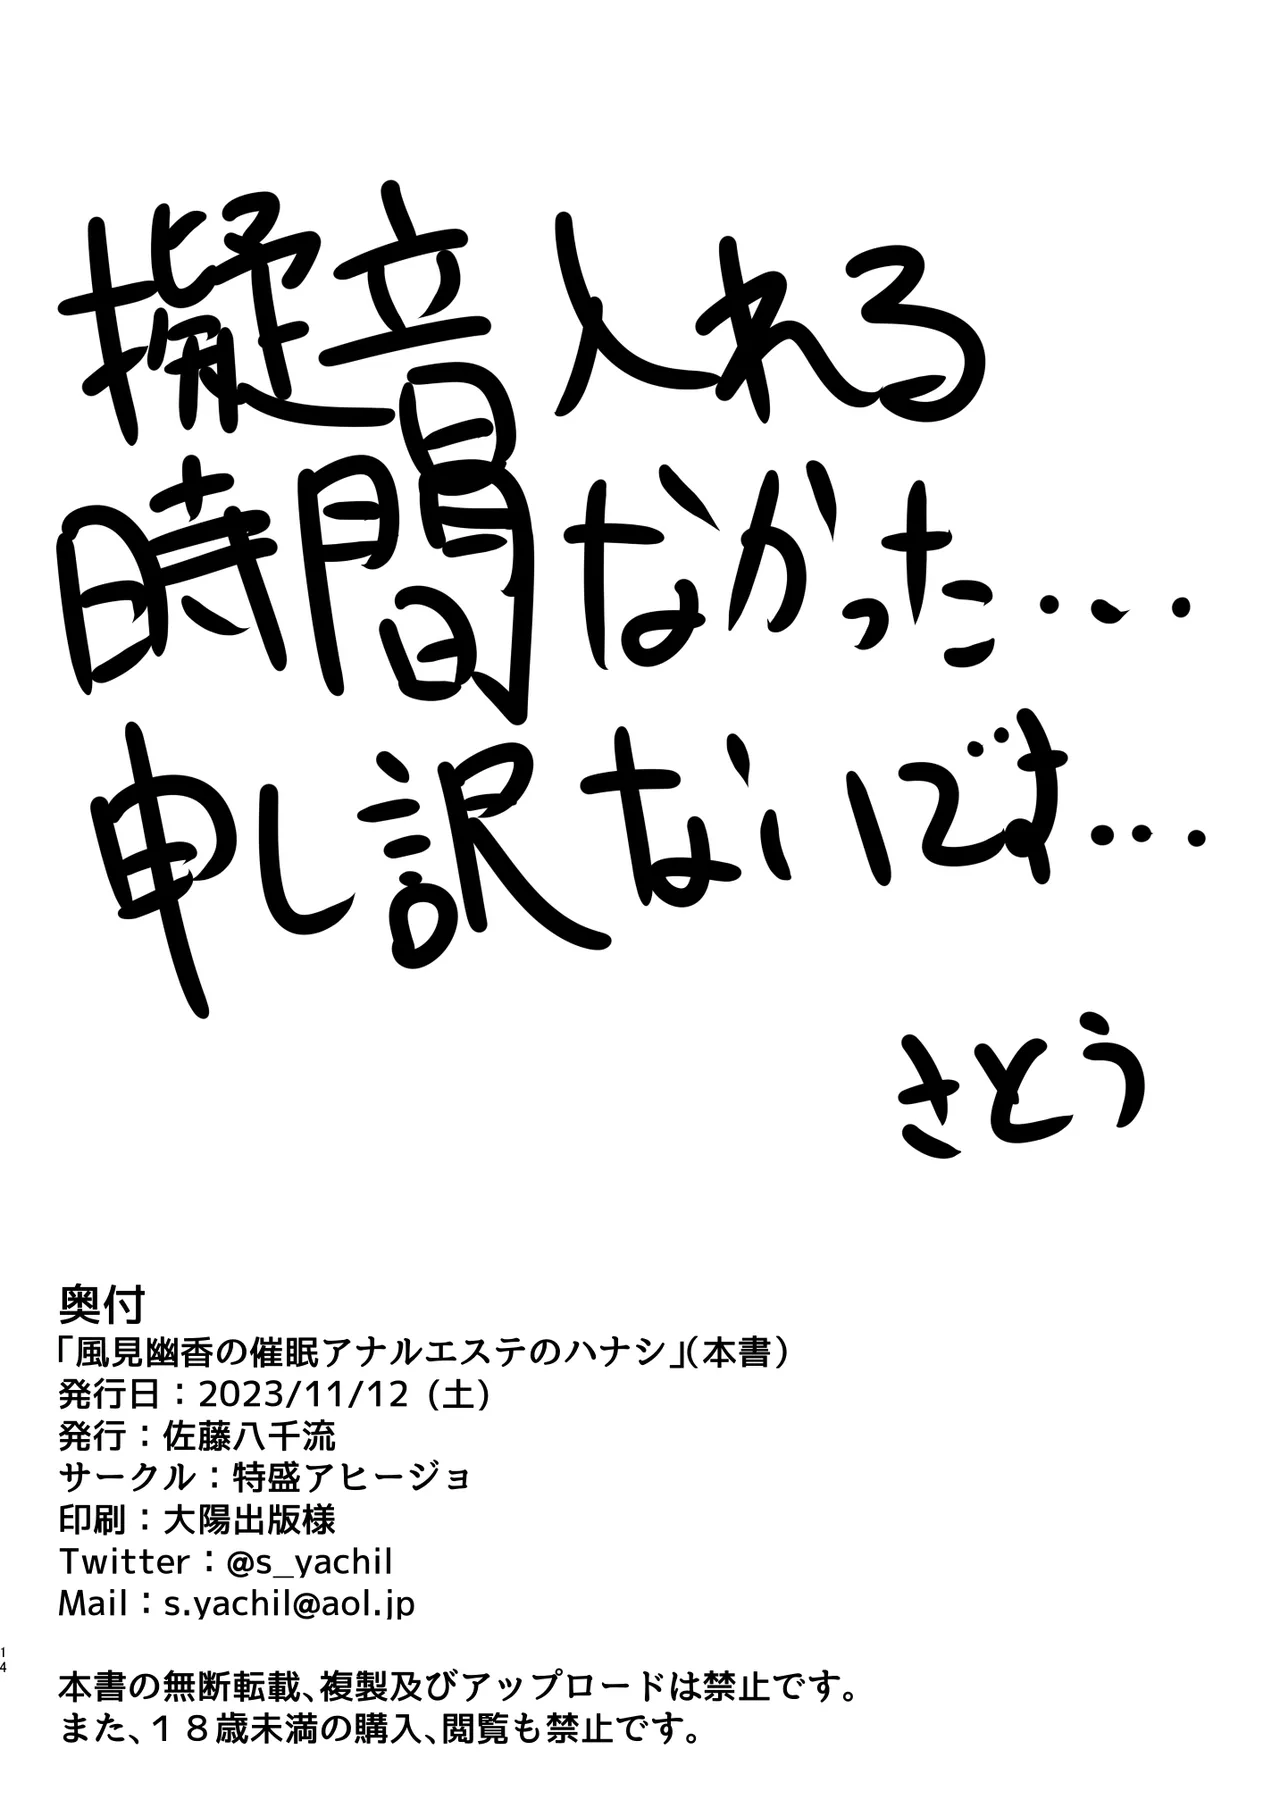 擬音入れる
時間なかった・・・
申し訳ないです・・・
さとう
奥付
「風見幽香の催眠アナルエステのハナシ」（本書）
発行日：2023/11/12（土）
発行：佐藤八千流
サークル：特盛アヒージョ
印刷：大陽出版様
Twitter：@s_yachil
Mail：s.yachil@aol.jp
14
本書の無断転載、複製及びアップロードは禁止です。
また、１８歳未満の購入、閲覧も禁止です。